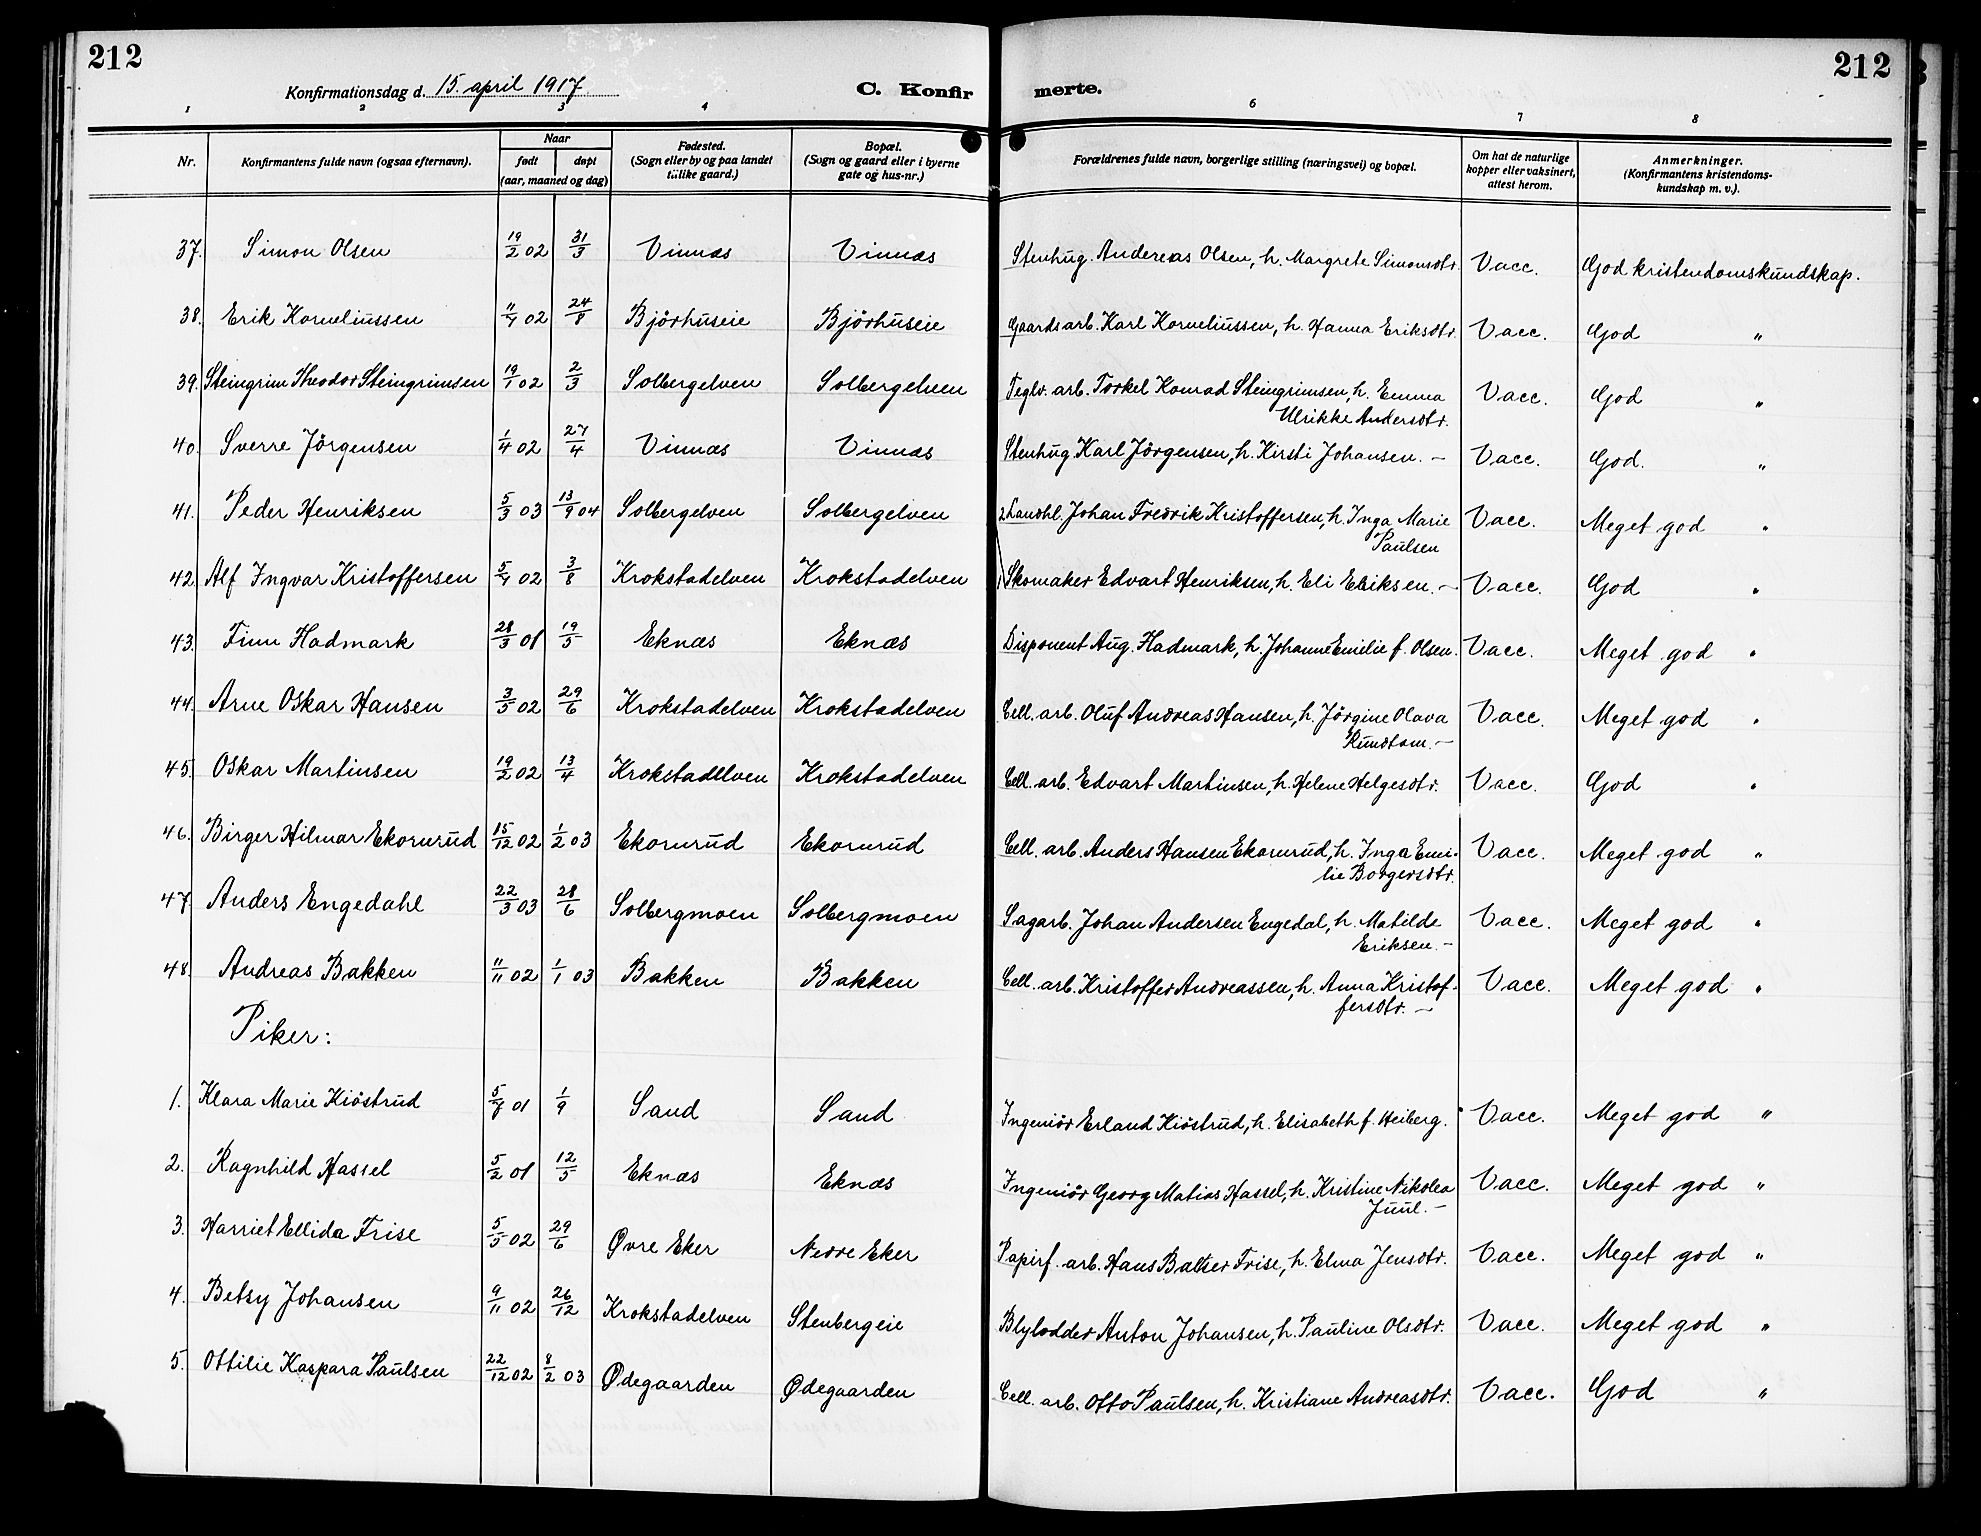 212
212
Konfirmationsdag d. 15. april 1917
C. Konfirmerte.
1 2 3 4 6 7 8
Nr. Konfirmantens fulde navn (ogsaa efternavn). Naar født døpt (aar, maaned og dag) Fødested. (Sogn eller by og paa landet tillike gaard.) Bopæl. (Sogn og gaard eller i byerne gate og hus-nr.) Forældrenes fulde navn, borgerlige stilling (næringsvei) og bopæl. Om hat de naturlige kopper eller vaksinert, attest herom. Anmerkninger. (Konfirmantens kristendoms-kundskap m. v.).
37. Simon Olsen 19/2 02 31/3 Vinnæs Vinnæs Stenhug. Andereas Olsen, h. Margrete Simonsdtr. Vacc. God kristendomskundskap.
38. Erik Korneliussen 11/7 02 24/8 Bjørhuseie Bjørhuseie Gaards arb. Karl Korneliussen, h. Hanna Eriksdtr. Vacc. God "
39. Steingrim Theodor Steingrimsen 19/1 02 2/3 Solbergelven Solbergelven Teglv. arb. Torkel Konrad Steingrimsen, h. Emma
Ulrikke Andersdtr. Vacc. God "
40. Sverre Jörgensen 1/4 02 27/4 Vinnæs Vinnæs Stenhug Karl Jörgensen, h. Kirsti Johansen. – Vacc. God. "
41. Peder Henriksen 5/3 03 13/9 04 Solbergelven Solbergelven 2 Landhl. Johan Fredrik Kristoffersen, h. Inga Marie
Paulsen Vacc. Meget god "
42. Alf Ingvar Kristoffersen 5/7 02 3/8 Krokstadelven Krokstadelven 1 Skomaker Edvart Henriksen, h. Eli Eriksen. – Vacc. God "
43. Finn Hadmark 28/3 01 19/5 Eknæs Eknæs Disponent Aug. Hadmark, h. Johanne Emilie f. Olsen. Vacc. Meget god "
44. Arne Oskar Hansen 3/5 02 29/6 Krokstadelven Krokstadelven Cell. arb. Oluf Andreas Hansen, h. Jörgine Olava
Rundtom. – Vacc. Meget god "
45. Oskar Martinsen 19/2 02 13/4 Krokstadelven Krokstadelven Cell. arb. Edvart Martinsen, h. Helene Helgesdtr. Vacc. God "
46. Birger Hilmar Ekornrud 15/12 02 1/2 03 Ekornrud Ekornrud Cell. arb. Anders Hansen Ekornrud, h. Inga Emi-
lie Borgersdtr. Vacc. Meget god "
47. Anders Engedahl 22/3 03 28/6 Solbergmoen Solbergmoen Sagarb. Johan Andersen Engedal, h. Matilde
Eriksen. – Vacc. Meget god "
48. Andreas Bakken 11/11 02 1/1 03 Bakken Bakken Cell. arb. Kristoffer Andreassen, h. Anna Kristof-
fersdtr. – Vacc. Meget god "
Piker:
1. Klara Marie Kiöstrud 5/7 01 1/9 Sand Sand Ingeniör Erland Kiöstrud, h. Elisabeth f. Heiberg. Vacc. Meget god "
2. Ragnhild Hassel 5/2 01 12/5 Eknæs Eknæs Ingeniör Georg Matias Hassel, h. Kristine Nikolea
Juul. – Vacc. Meget god "
3. Harriet Ellida Frise 5/5 02 29/6 Øvre Eker Nedre Eker Papirf. arb. Hans Baltser Frise, h. Elma Jensdtr. Vacc. Meget god "
4. Betsy Johansen 9/11 02 26/12 Krokstadelven Stenbergeie Blylodder Anton Johansen, h. Pauline Olsdtr. Vacc. Meget god "
5. Ottilie Kaspara Paulsen 22/12 02 8/2 03 Ødegaarden Ødegaarden Cell. arb. Otto Paulsen, h. Kristiane Andreasdtr. Vacc. God "